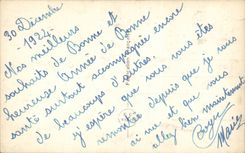 30 Décembre
1922.
Nos meilleurs
souhaits de Bonne et
heureuse année de Bonne
santé surtout acompagnée encore
de beaucoup d'autres.
J'espère que vous vous êtes
remontée depuis que je vous
ai vue et que vous
allez bien maintenant
Marie